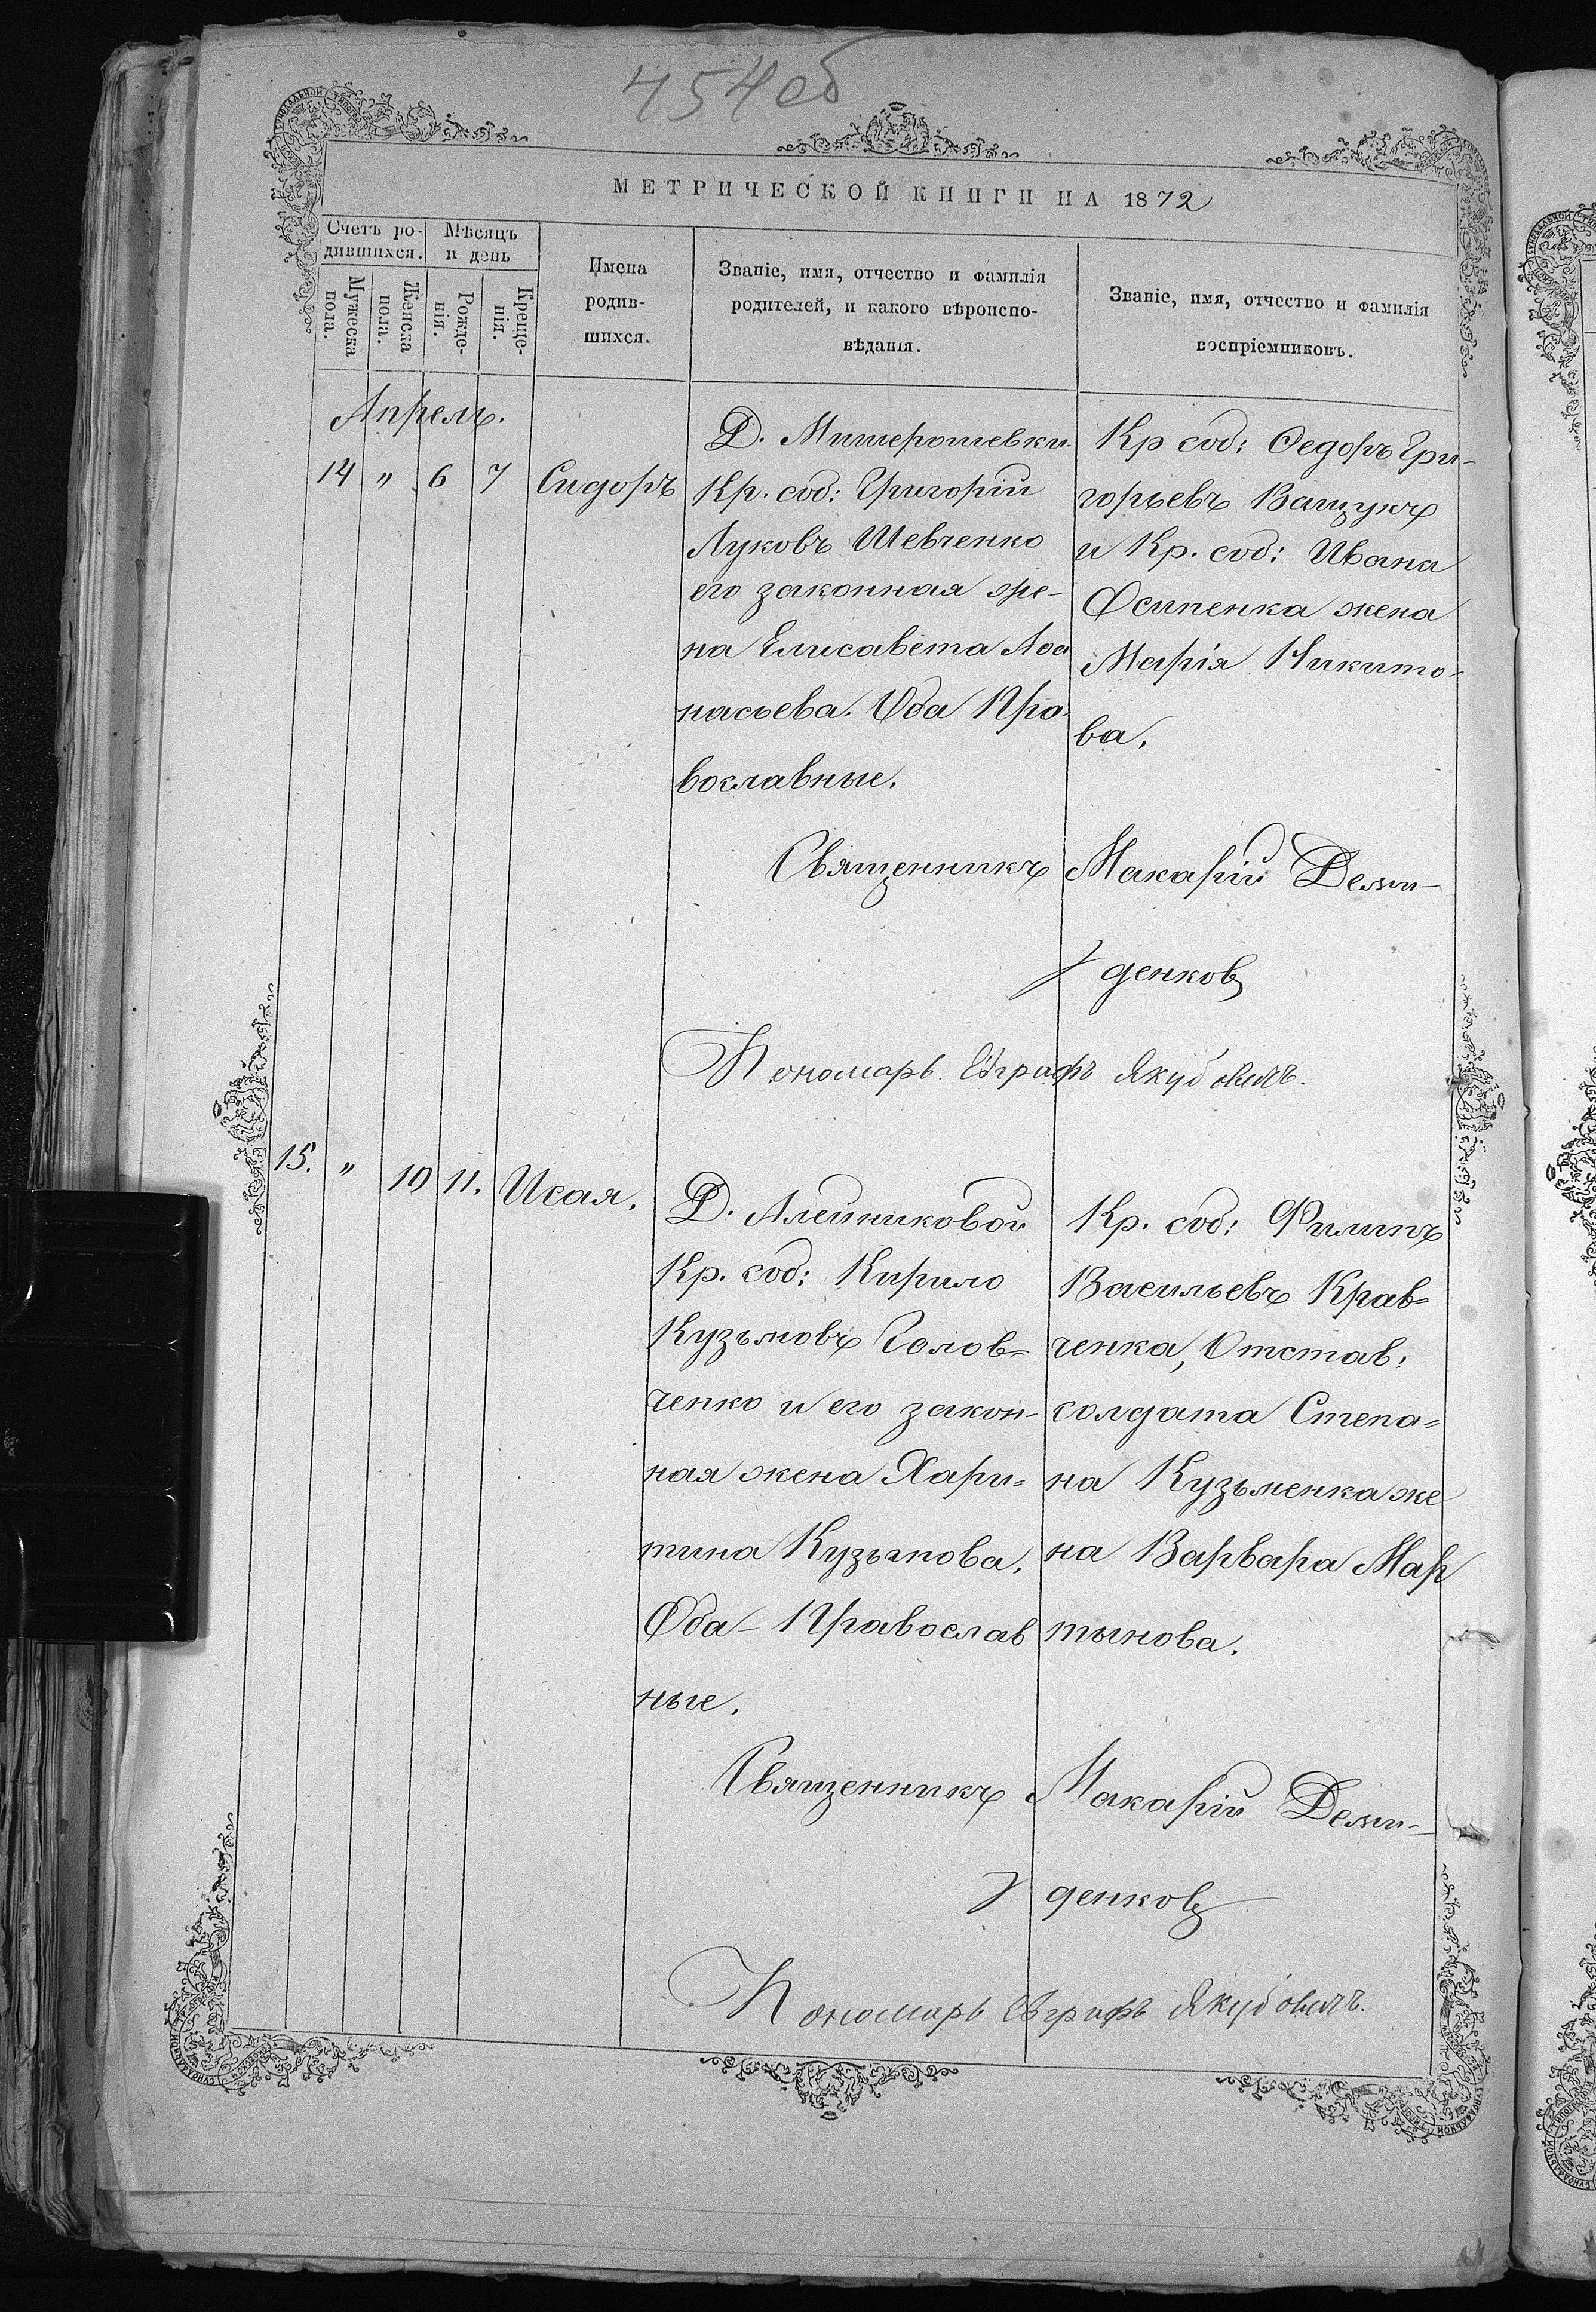 454об
МЕТРИЧЕСКОЙ КНИГИ НА 1872
Счетъ ро-
дившихся.
Мѣсяцъ
и день
Мужеска
пола.
Женска
пола.
Рожде-
нія.
Креще-
нія.
Имена
родив-
шихся.
Званіе, имя, отчество и фамилія
родителей, и какого вѣроиспо-
вѣданія.
Званіе, имя, отчество и фамилія
воспріемниковъ.
Апрель.
14 " 6 7 Сидоръ
Д. Мишерошевки
Кр. соб: Григорій
Луковъ Шевченко
его законная же-
на Елисавета Аѳа
насьева. Оба Пра-
вославные.
Кр соб: Ѳедоръ Гри-
горьевъ Ващукъ
и Кр. соб: Ивана
Осипенка жена
Марія Никито-
ва.
Священникъ Макарій Деми-
денковъ
Пономарь Евграфъ Якубовичъ.
15. " 10 11. Исая.
Д. Алейниковой
Кр. соб: Кирило
Кузьмовъ Голов=
ченко и его закон-
ная жена Хари=
тина Кузьмова.
Оба - Православ
ные.
Кр. соб: Филипъ
Васильевъ Крав=
ченка, Отстав:
солдата Степа=
на Кузьменка же
на Варвара Мар
тынова.
Священникъ Макарій Деми-
денковъ
Пономарь Евграфъ Якубовичъ.